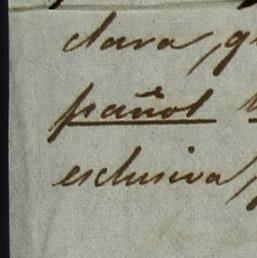 clara, q
pañol
esclusiva,